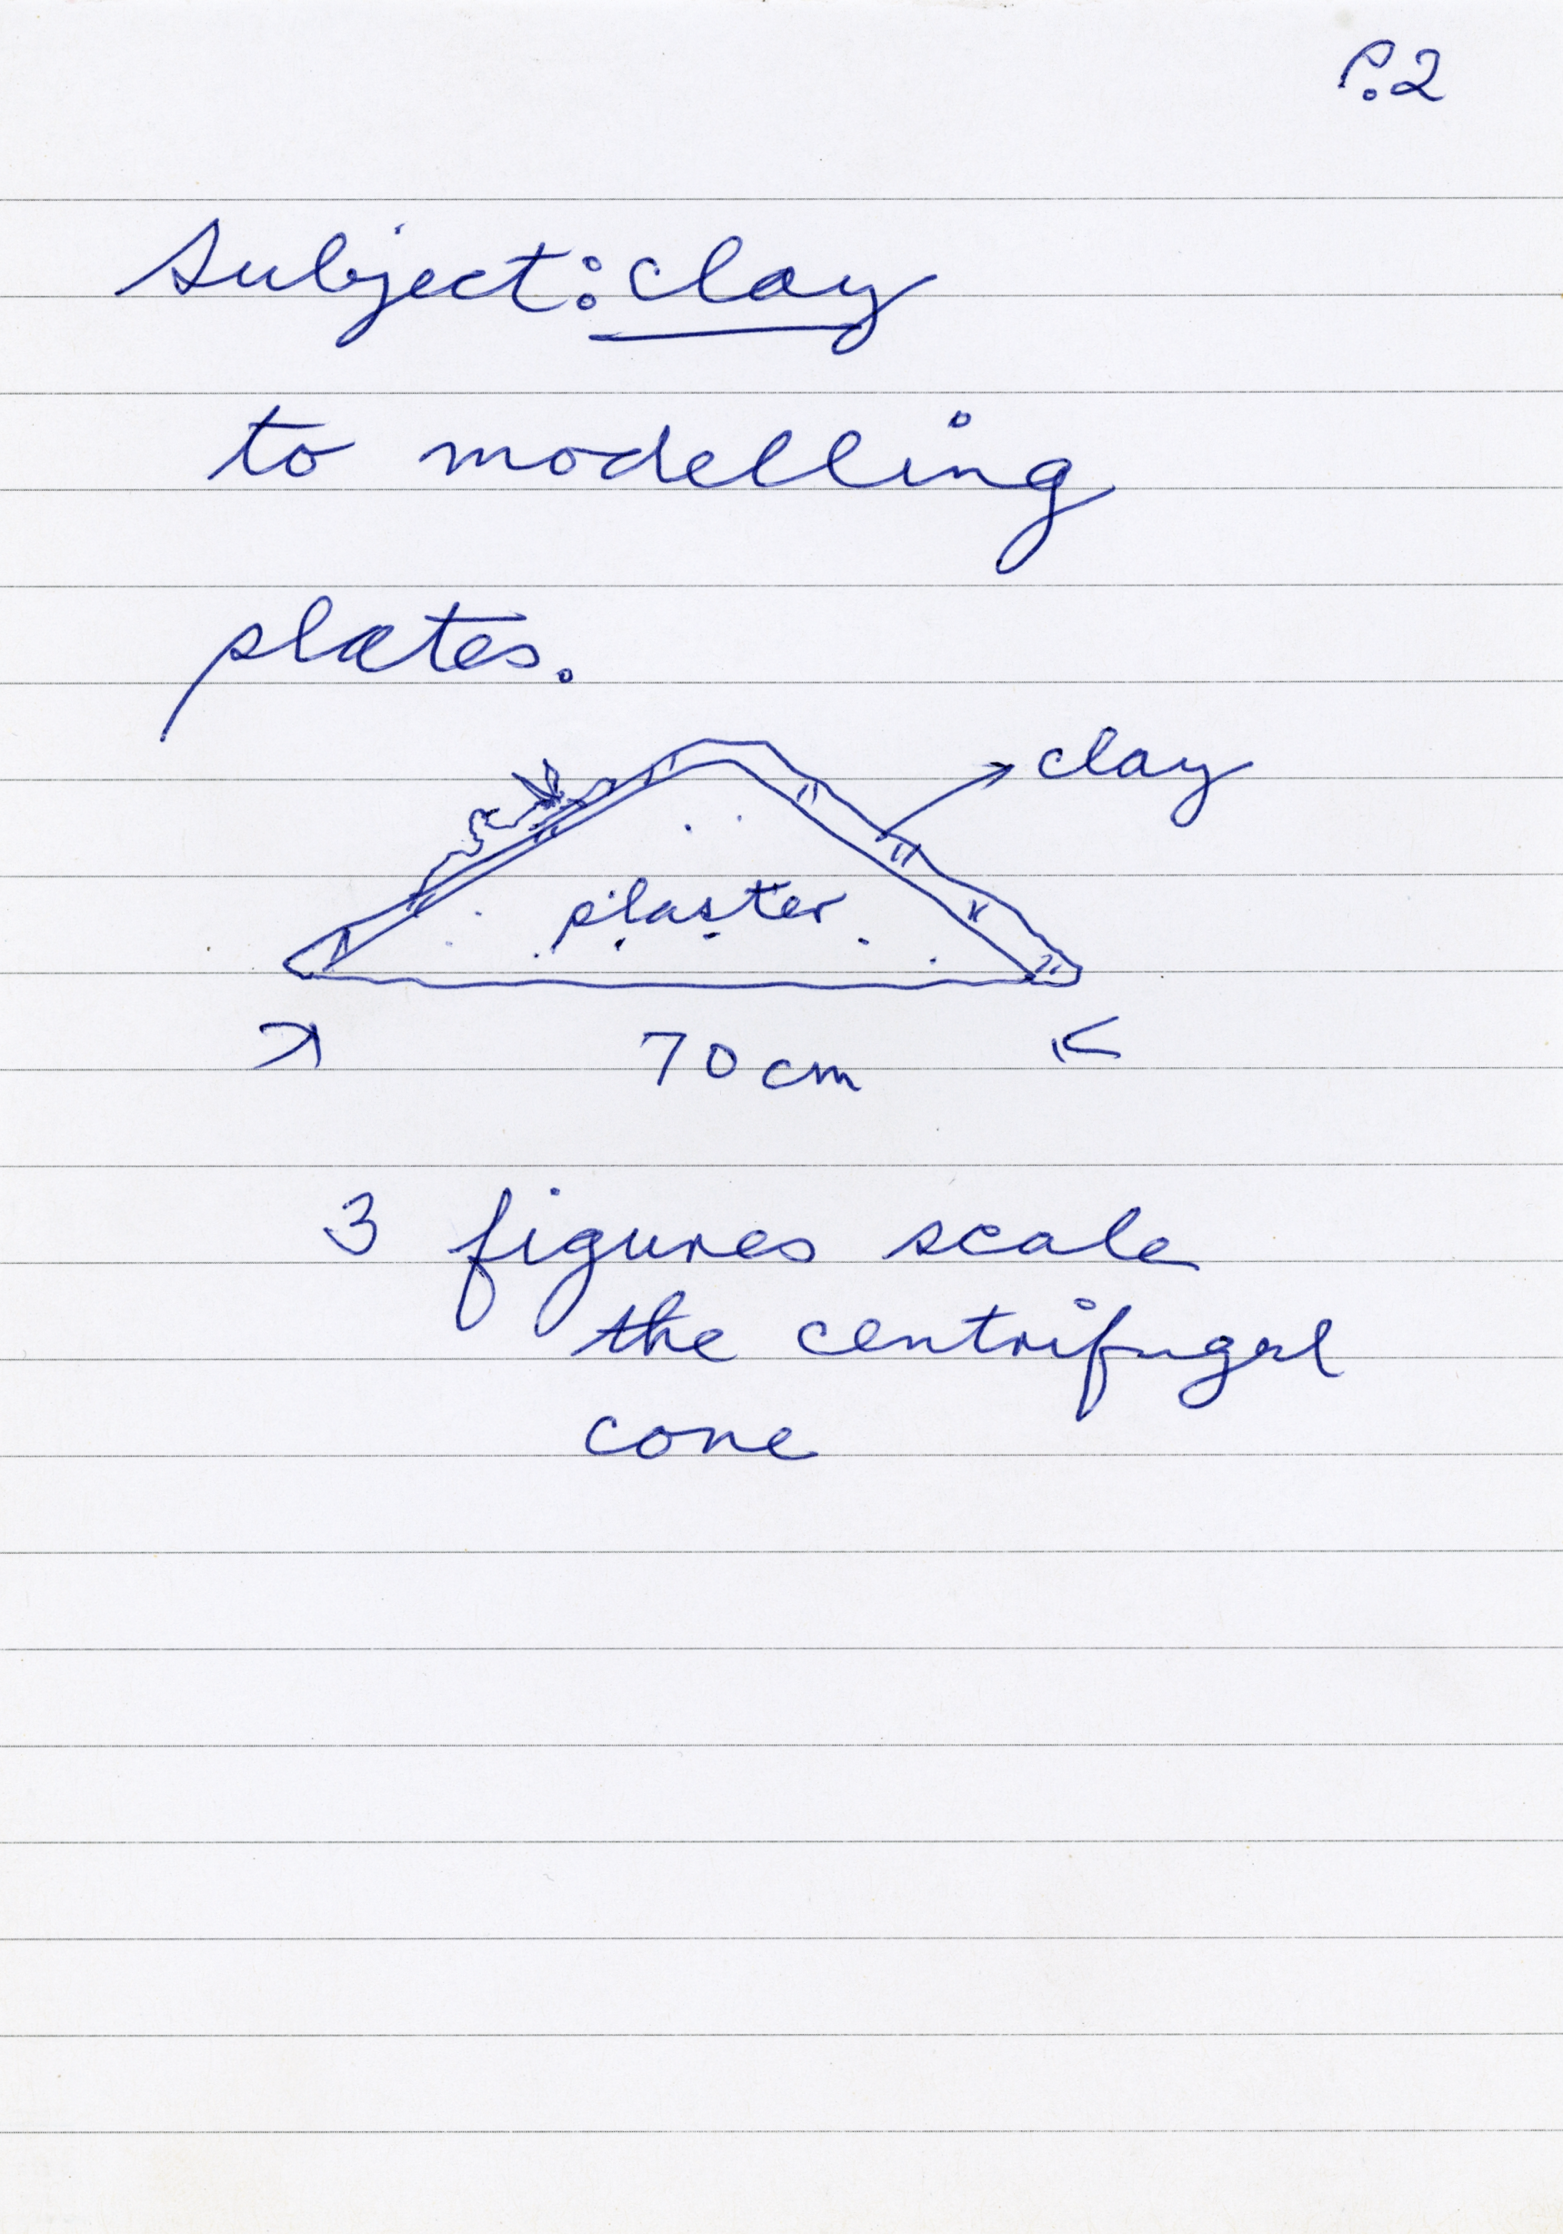 P.2
Subject: clay
to modelling
plates.
clay
plaster
70 cm
3 figures scale
the centrifugal
cone